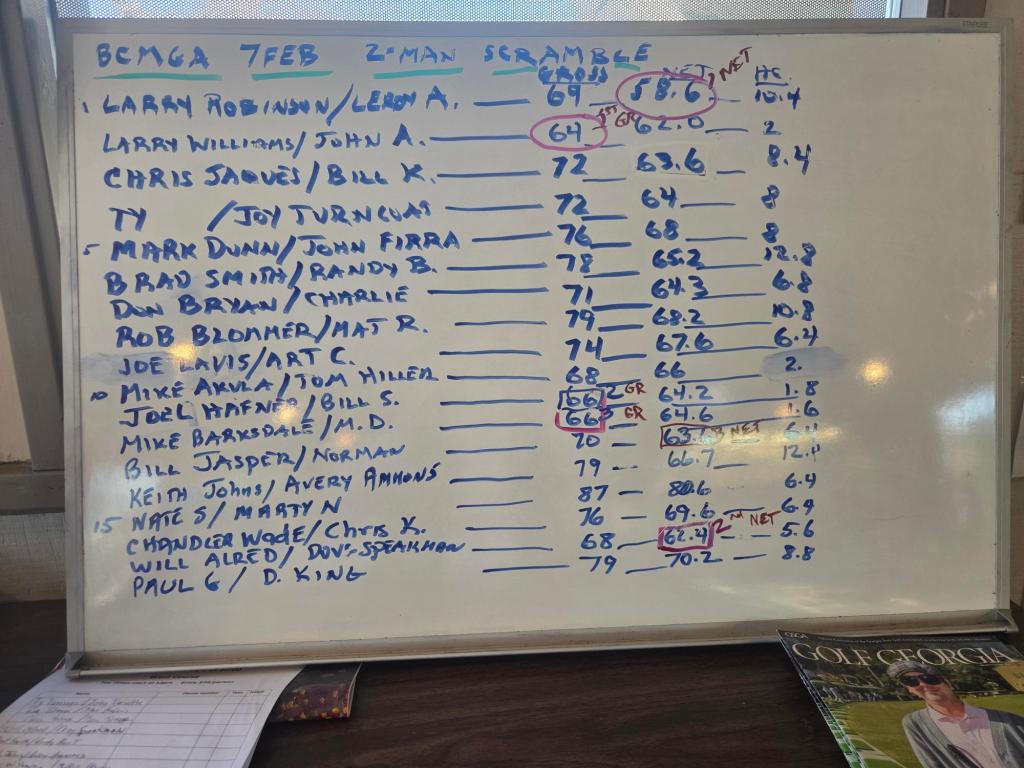 BCMGA 7FEB 2-MAN SCRAMBLE
GROSS NET HC.
1 LARRY ROBINSON/LEROY A. — 69 — 58.6 1 NET — 10.4
LARRY WILLIAMS/JOHN A. — 64 — 1ST GR 62.0 — 2
CHRIS JAQUES/BILL K. — 72 — 63.6 — 8.4
TY /JOY TURNCOAT — 72 — 64 — 8
5 MARK DUNN/JOHN FIRRA — 76 — 68 — 8
BRAD SMITH/RANDY B. — 78 — 65.2 — 12.8
DON BRYAN/CHARLIE — 71 — 64.3 — 6.8
ROB BLOMMER/MAT R. — 79 — 68.2 — 10.8
JOE LAVIS/ART C. — 74 — 67.6 — 6.4
10 MIKE AKULA/TOM MILLER — 68 — 66 — 2.
JOEL HAFNER/BILL S. — 66 2 GR 64.2 — 1.8
MIKE BARKSDALE/M.D. — 66 3 GR 64.6 — 1.6
BILL JASPER/NORMAN — 70 — 63.6 3 NET 6.4
KEITH JOHNS/AVERY AMMONS — 79 — 66.7 — 12.4
15 NATE S/MARTY N — 87 — 80.6 6.4
CHANDLER WADE/CHRIS K. — 76 — 69.6 — 6.4
WILL ALRED/DON SPEAKMAN — 68 — 62.4 2nd NET — 5.6
PAUL G/ D. KING — 79 — 70.2 — 8.8
GOLF GEORGIA